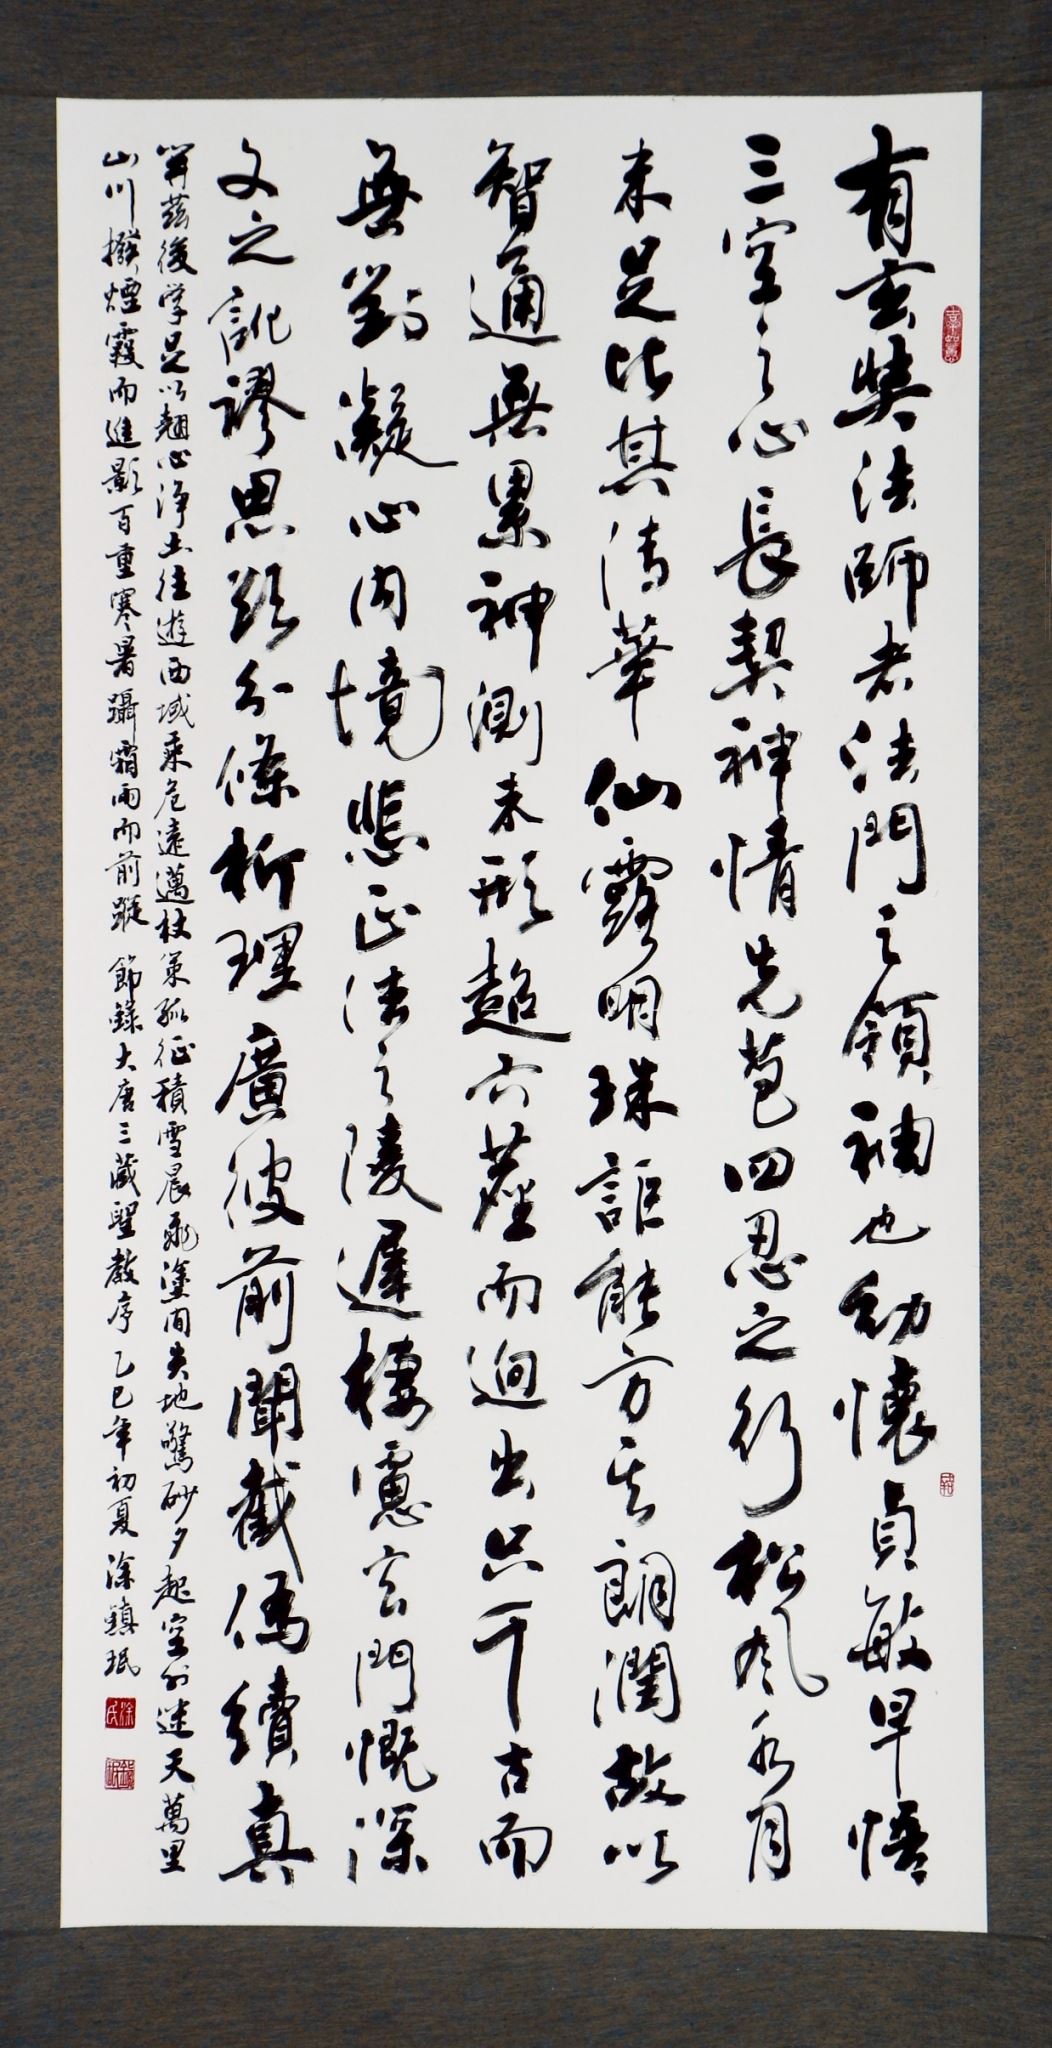 有玄奘法師者法門之領袖也幼懷貞敏早悟
三空之心長契神情先苞四忍之行松風水月
未足比其清華仙露明珠詎能方其朗潤故以
智通無累神測未形超六塵而迥出只千古而
無對凝心內境悲正法之陵遲棲慮玄門慨深
文之訛謬思欲分條析理廣彼前聞截偽續真
開茲後学是以翹心淨土往遊西域乘危遠邁杖策孤征積雪晨飛塗間失地驚砂夕起空外迷天萬里
山川撥煙霞而進影百重寒暑躡霜雨而前蹤 節錄大唐三藏聖教序 乙巳年初夏 涂鎮珉
涂氏
鎮珉